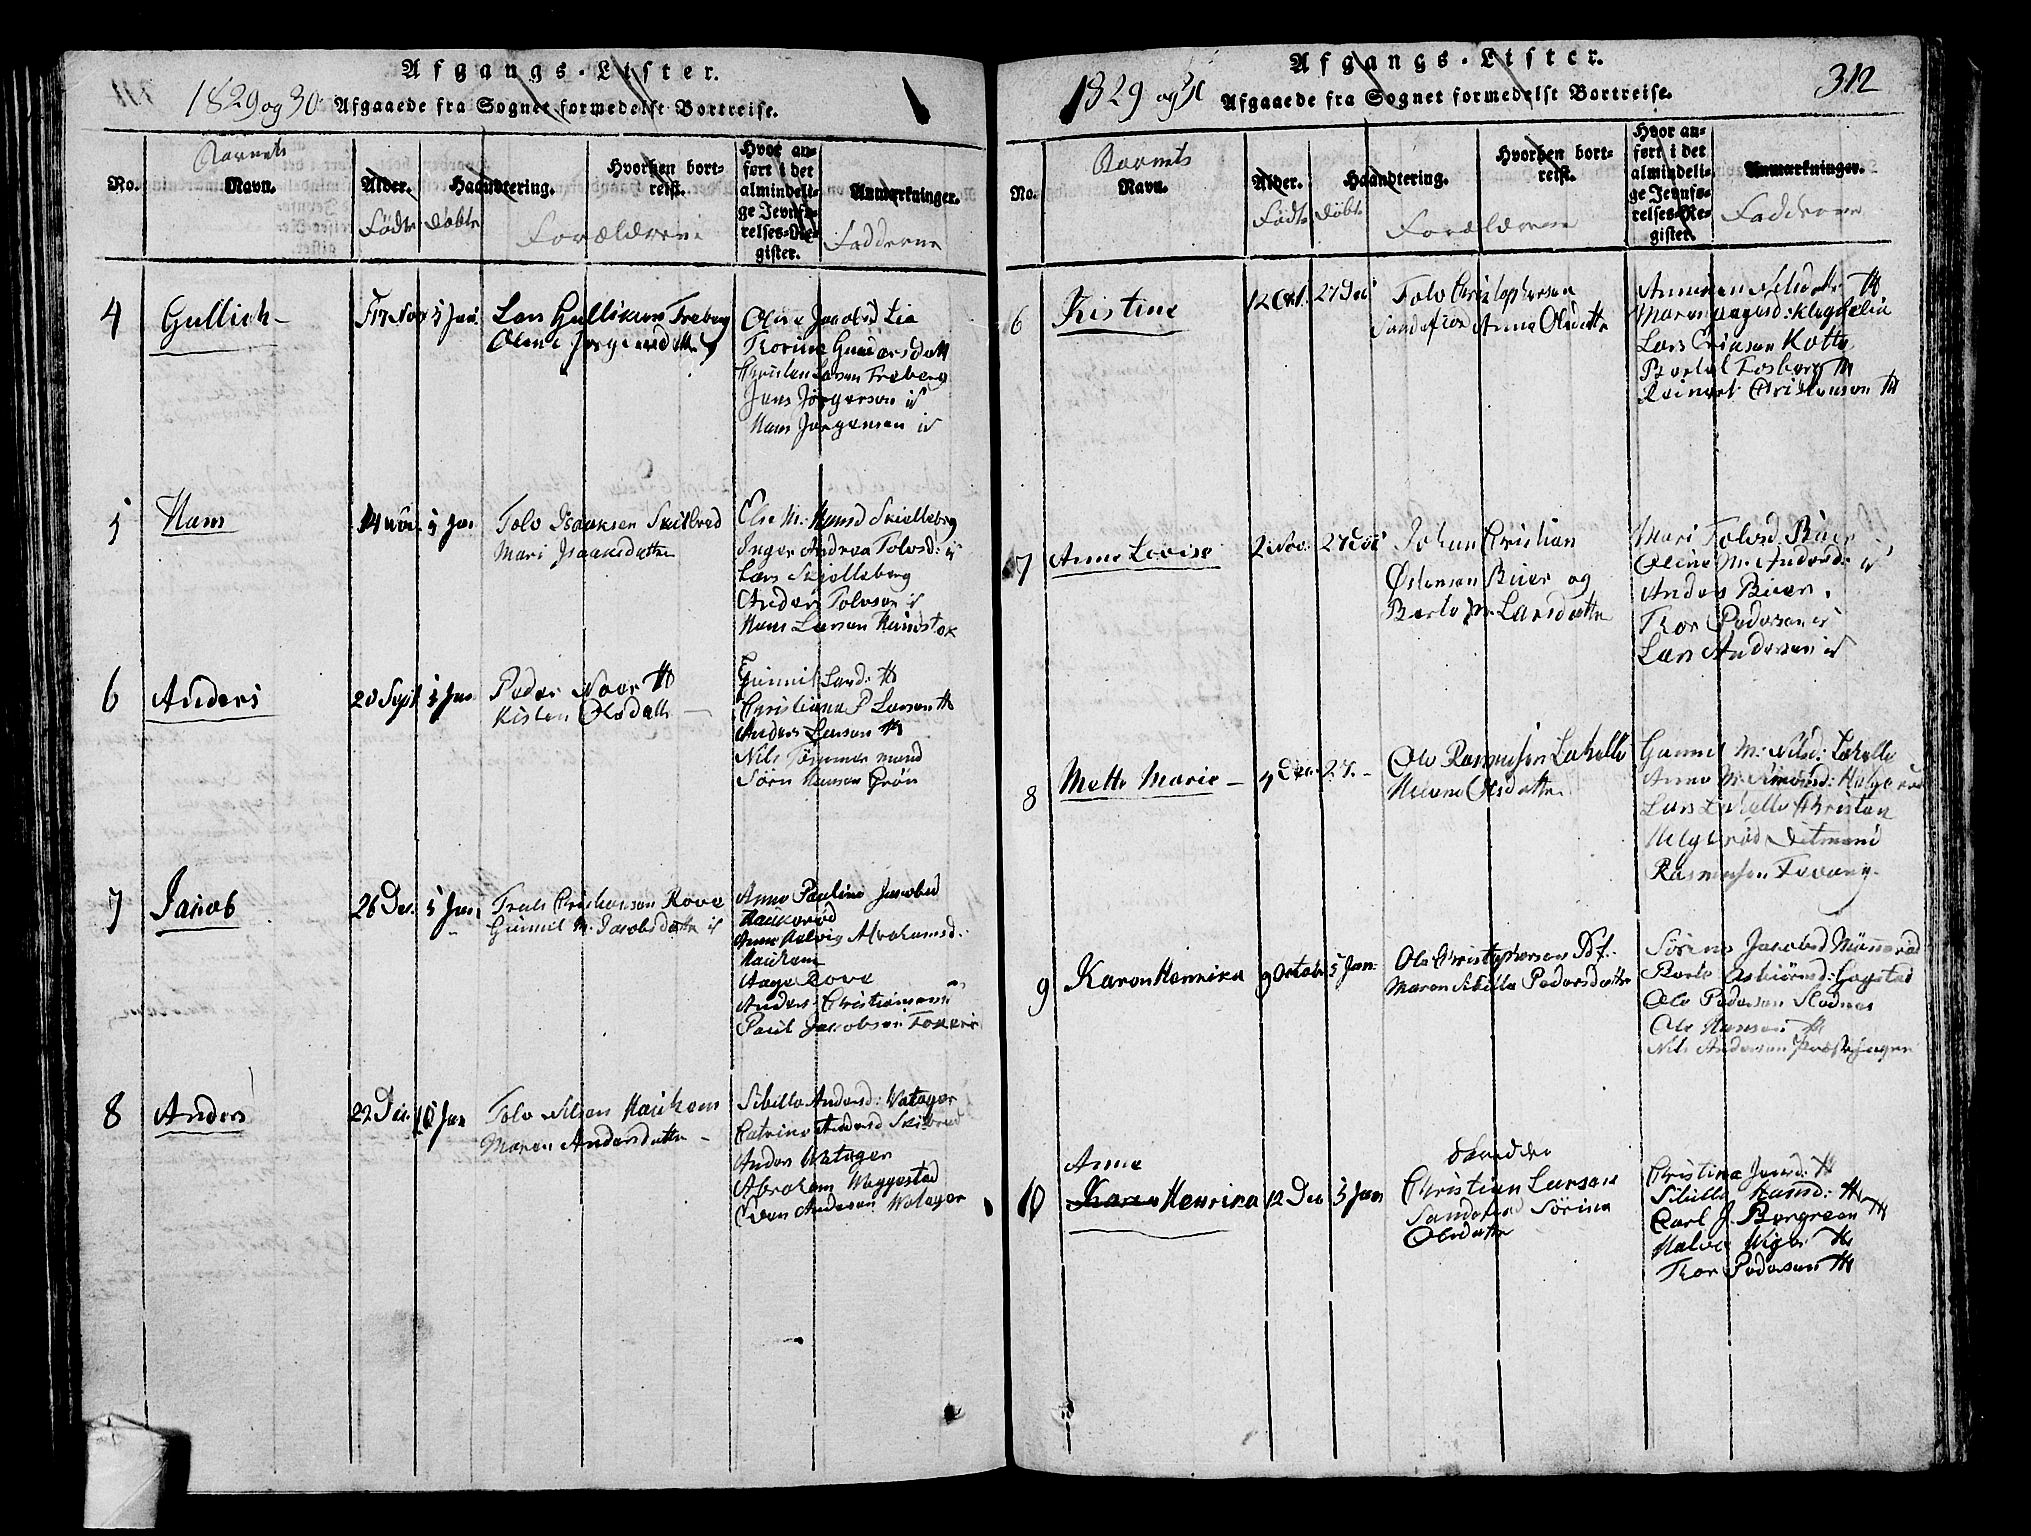 1829 og 30
Afgangs-Lister.
Afgaaede fra Sognet formedelst Bortreise.
No.
Barnets
Navn.
Alder.
Fødte
Døbte
Haandtering.
Forældrene
Hvorhen bort-
reist.
Hvor an-
ført i det
almindeli-
ge Jevnfø-
relses-Re-
gister.
Anmærkninger.
Fadderne
4 Gullich 17 Nov 5 Jan
Lars Gulliksen Freberg
Oline Jørgensdatter
Oline Jacobsd Lie
Thorine Gundersdatt
Christen Larsen Freberg
Jens Jørgensen
Hans Jørgensen
5 Hans 14 Nov 5 Jan
Tolv Isaaksen Skilbred
Mari Isaaksdatter
Else M. Hansd Skielleberg
Inger Andrea Tolvsd:
Lars Skielleberg
Anders Tolvsen
Hans Larsen
6 Anders 20 Sept 5 Jan
Peder Noer
Kisten Olsdatt
Gunnil Larsd:
Christiana P Larsen
Anders Larsen
Nils Tømmermand
Sørn Hansen Grøn
7 Jacob 26 Des. 5 Jan
Truls Rove
Gunnil M. Jacobsdatter
Anne Pauline Jacobsd
Haukerød
Anne Helvig Abrahamsd:
Haukem
Aage Rove
Anders Christiansen
Paul Jacobsen
8 Anders 22 Dec. 10 Jan
Tolv Nilsen Haukem
Maren Andersdatter
Sibille Andersd: Watager
Catrine Andersd Skilbred
Anders Watager
Abraham Weggestad
Even Andersen Watager
1829 og
Afgangs-Lister.
312
Afgaaede fra Sognet formedelst Bortreise.
No.
Barnets
Navn.
Alder.
Fødte
Døbte
Haandtering.
Forældrene
Hvorhen bort-
reist.
Hvor an-
ført i det
almindeli-
ge Jevnfø-
relses-Re-
gister.
Anmærkninger.
Fadderne
6 Kistine 12 Oct. 27 Dec
Tolv Christophersen
Anne Olsdatter
Lars Eriksen
Bertel Fosberg
Reinert Christensen
7 Anne Lovise 2 Nov. 27 Dec
Johan Christian
Østensen Buer og
Berte M. Larsdatter
Mari Tolvsd Buer
Oline M. Andersd:
Anders Buer
Thor Pedersen
Lars Andersen
8 Mette Marie 4 Dec. 27.
Ole Rasmusen Lakelle
Helene Olsdatter
Gunnil M. Nilsd: Lakelle
Anne M. Helgerød
Lars Lakelle Christen
Helgerød Ditmand
Rasmusen
9 Karen Henrica 9 Octob 5 Jan:
Ole Christophersen
Maren Sibille Pedersdatter
Sørine Jacobsd
Berte Asbiørnsd: Gogstad
Ole Pedersen
Ole Hansen
Nils Andersen
10 Anne
Karen Henrica 12 Dec 5 Jan
Christian Larsen
Sørine
Olsdatter
Christina
Sibille Hansd:
Carl J. Borgreen
Thor Pedersen